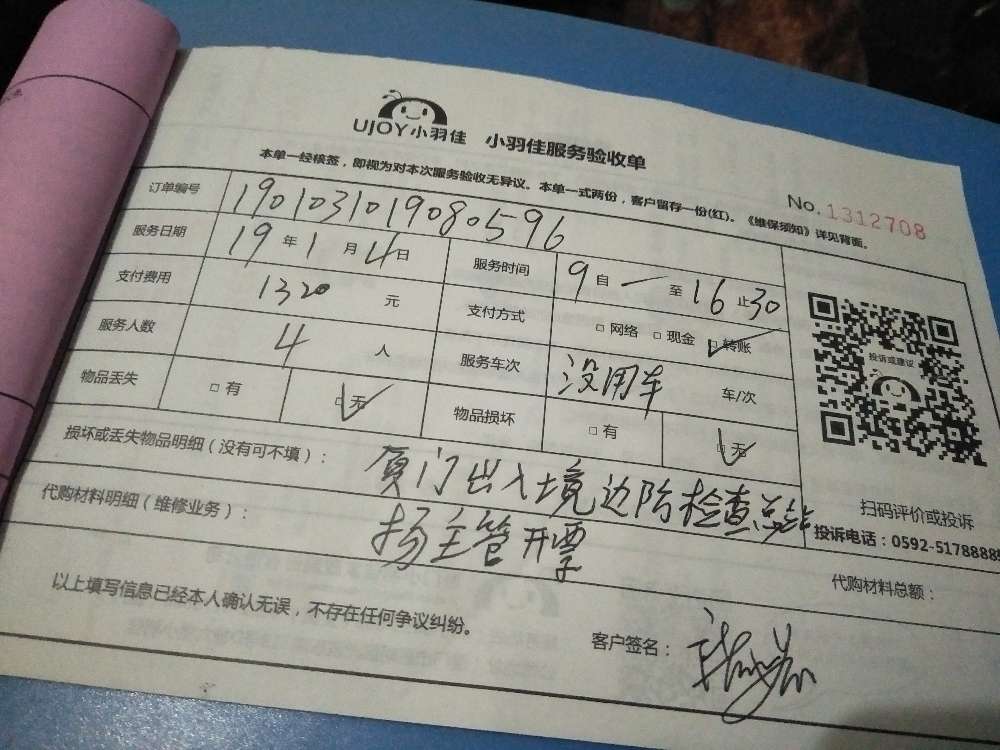 UJOY小羽佳 小羽佳服务验收单
本单一经核签，即视为对本次服务验收无异议。本单一式两份，客户留存一份(红)。《维保须知》详见背面。
No. 1312708
订单编号 1901031019080596
服务日期 19 年 1 月 4 日 服务时间 9 自 一 至 16 止 30
支付费用 1320 元 支付方式 □ 网络 □ 现金 □ 转账
服务人数 4 人 服务车次 没用车 车/次
物品丢失 □ 有 □ 无 物品损坏 □ 有 □ 无
投诉或建议
扫码评价或投诉
投诉电话：0592-5178888
损坏或丢失物品明细（没有可不填）： 厦门出入境边防检查总站
代购材料明细（维修业务）： 杨主管开票
代购材料总额：
以上填写信息已经本人确认无误，不存在任何争议纠纷。
客户签名：